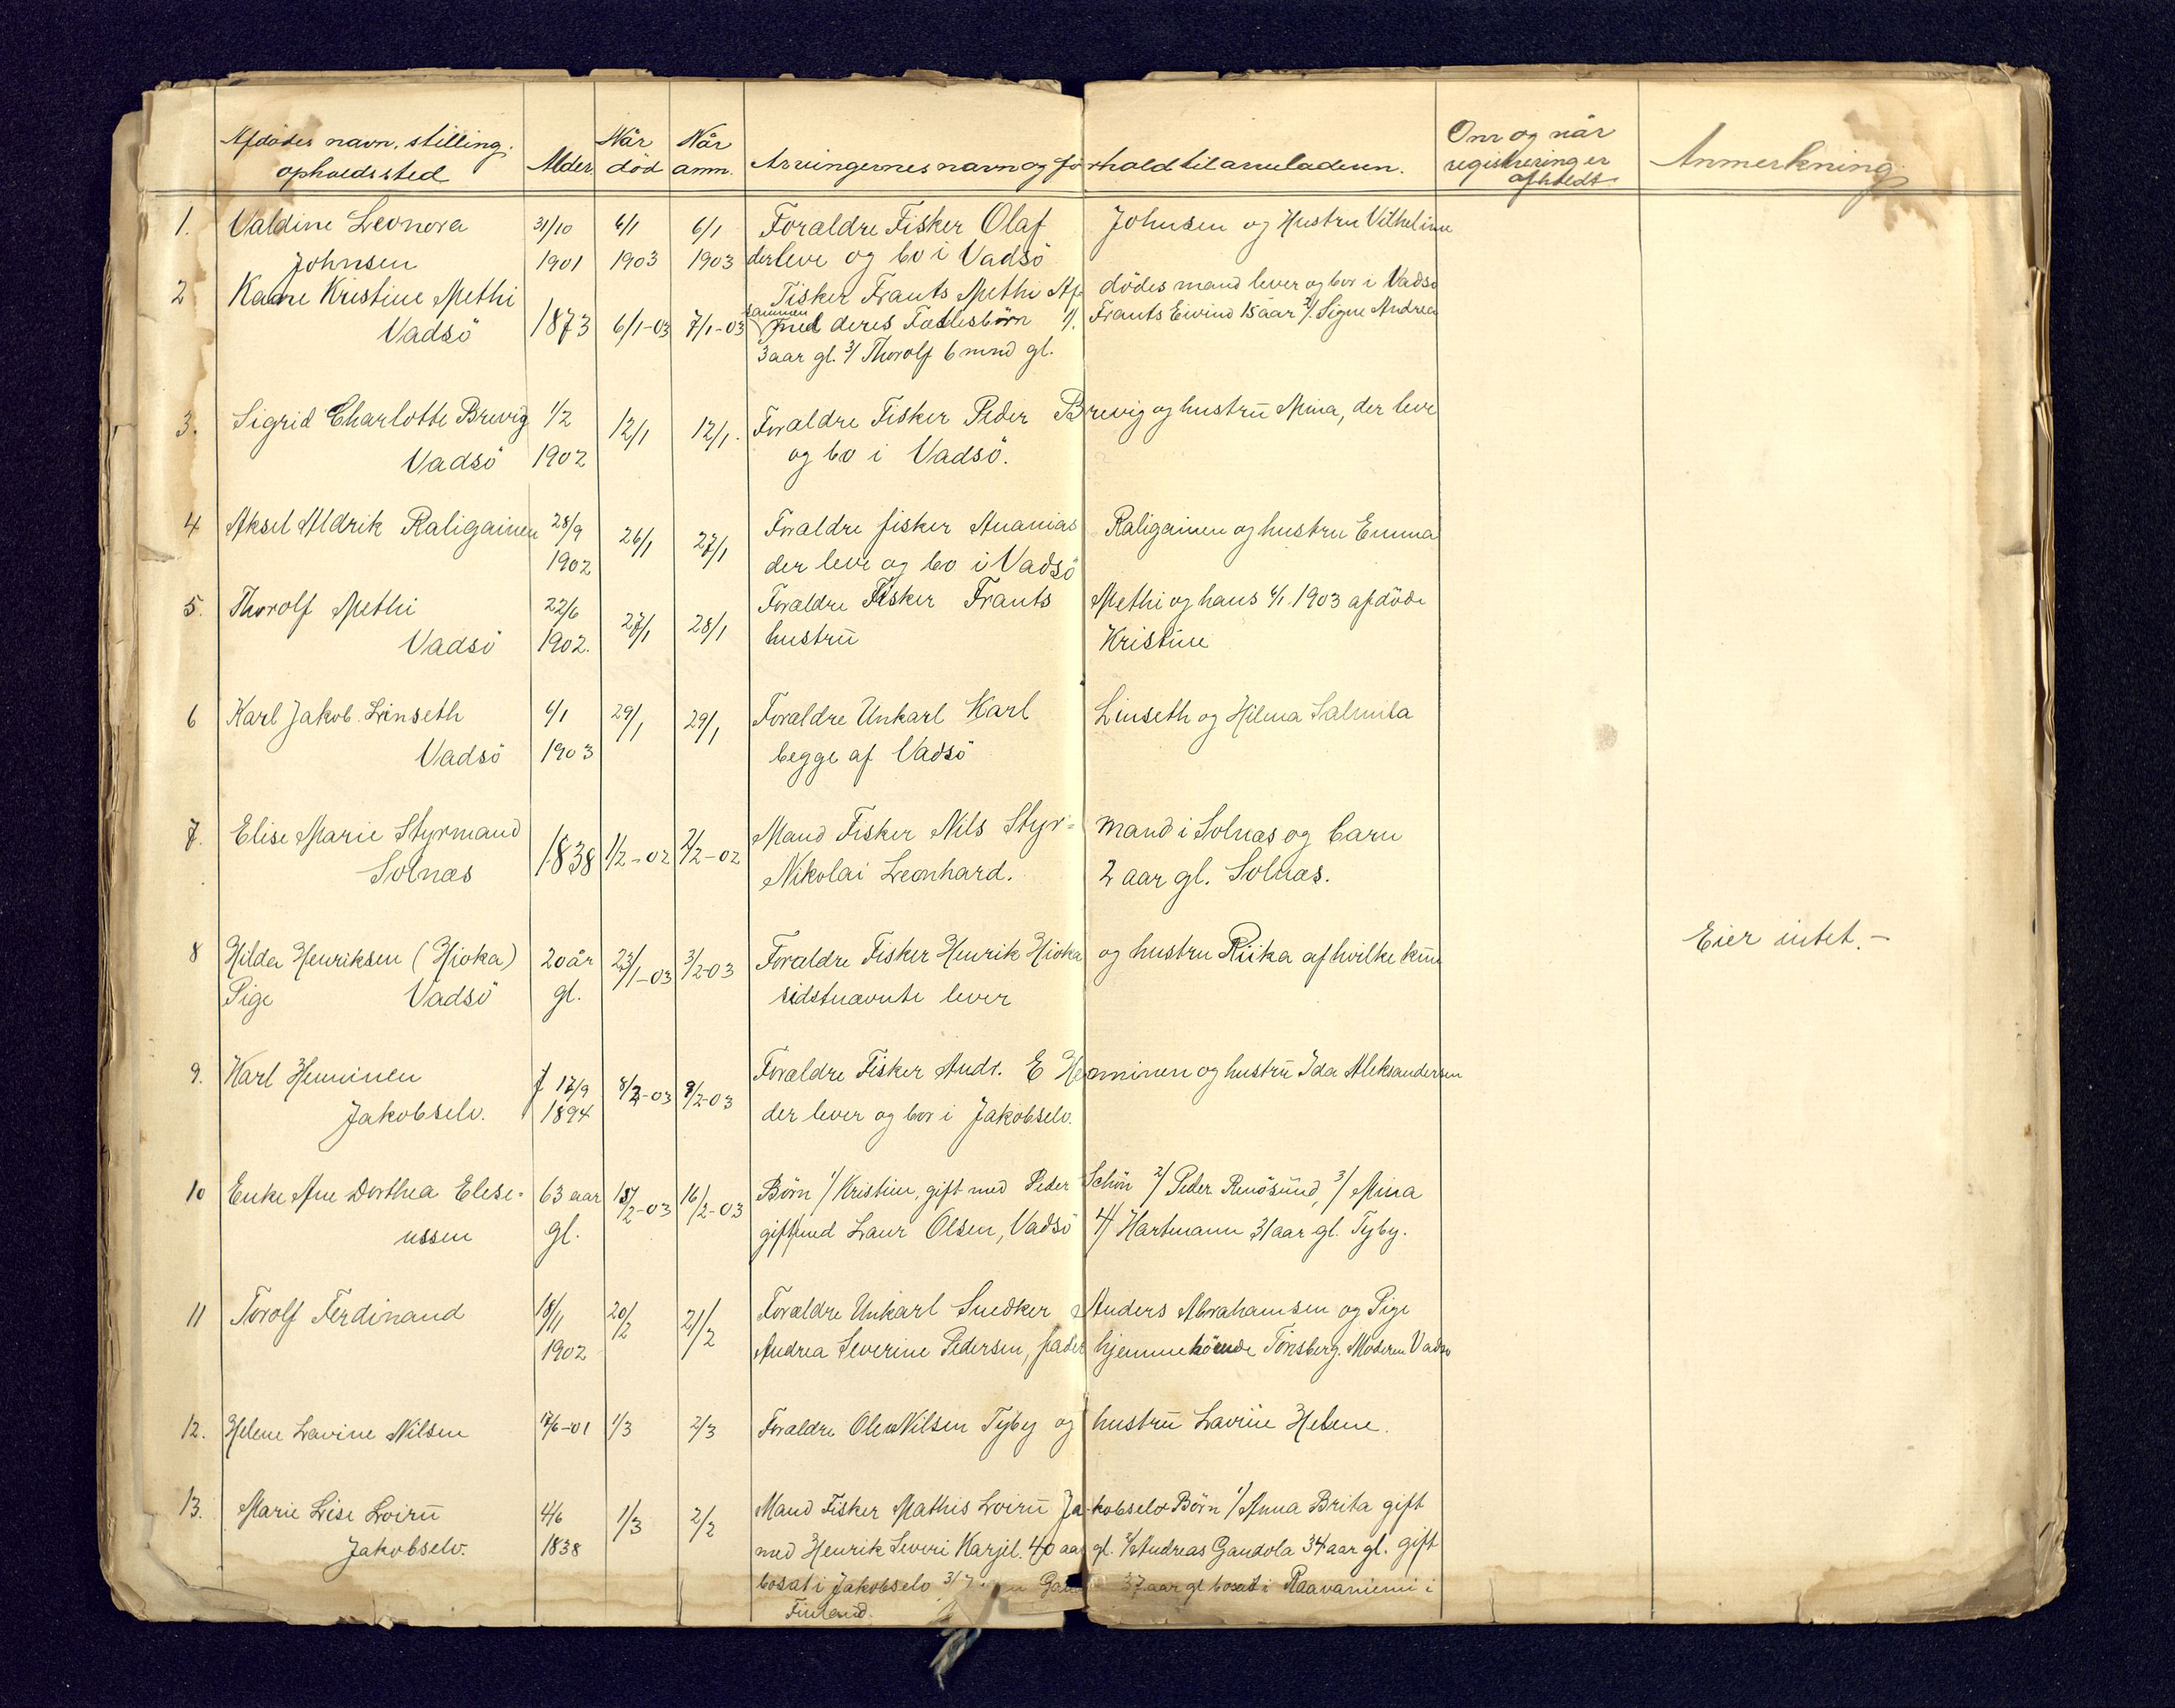 Afdødes navn, stilling. opholdssted | Alder. | Når død | Når anm. | Arvingernes navn og forhold til arveladeren. | Om og når registrering er afholdt | Anmerkning
1. Valdine Leonora | 31/10 | 6/1 | 6/1 | Foraldre Fisker Olaf Johnsen og Hustru Vilhelmine
Johnsen | 1901 | 1903 | 1903 | der leve og bo i Vadsö
2 Kame Kristine Methi | Fisker Frants Methi Af- dödes mand lever og bor i Vadsö
Vadsö | 1873 | 6/1-03 | 7/1-03 | sammen med deres Fællesbörn 1/. Frants Eivind 15 aar 2/. Signe Andrea
3 aar gl. 3/ Thorolf 6 mnd gl.
3. Sigrid Charlotte Brevig | 1/2 | 12/1 | 12/1. | Foraldre Fisker Peder Brevig og hustrū Mina, der leve
Vadsö | 1902 | og bo i Vadsö.
4 Aksel Aldrik Raligainen | 28/9 | 26/1 | 27/1 | Foraldre fisker Ananias Raligainen og hustru Emma
1902 | der leve og bo i Vadsö
5. Thorolf Methi | 22/6 | 27/1 | 28/1 | Foraldre Fisker Frants Methi og hans 6/1 1903 afdöde
Vadsö | 1902. | hustrū Kristine
6 Karl Jakob Linseth | 6/1 | 29/1 | 29/1 | Foraldre Unkarl Karl Linseth og Hilma Salmila
Vadsö | 1903 | begge af Vadsö
7. Elise Marie Styrmand | 1838 | 1/2-02 | 2/2-02 | Mand Fisker Nils Styr= mand i Solnæs og barn
Solnæs | Nikolai Leonhard. 2 aar gl. Solnæs.
8 Hilda Henriksen (Hioka) | 20 år | 23/1-03 | 3/2-03 | Foraldre Fisker Henrik Hioka og hustru Riika af hvilke kūn | Eier intet.-
Pige Vadsö | gl. | sidstnævnte lever
9. Karl Henninen | f 17/9 | 8/2-03 | 9/2-03 | Foraldre Fisker Andr. E Henninen og hustrū Ida Aleksandersen
Jakobselv. | 1894 | der lever og bor i Jakobselv.
10 Enke Ane Dorthea Elise- | 63 aar | 15/2-03 | 16/2-03 | Börn 1/ Kristine, gift med Peder Schön 2/ Peder Renösünd, 3/ Mina
ussen | gl. | gift med Laur Olsen, Vadsö 4/ Hartmann 31 aar gl. Tyby.
11 Torolf Ferdinand | 18/11 | 20/2 | 21/2 | Forældre Unkarl Snedker Anders Abrahamsen og Pige
1902 | Andrea Severine Pedersen, fader hjemmehörende Tönsberg. Moderen Vadsö
12. Helene Lavine Nilsen | 17/6-01 | 1/3 | 2/3 | Foraldre Ole Nilsen Tyby og hustrū Lavine Helene.
13. Marie Lise Loirū | 4/6 | 1/3 | 2/2 | Mand Fisker Mathis Loirū Jakobselv Börn 1/ Anna Brita gift
Jakobselv. | 1838 | med Henrik Severi Karjel. 40 aar gl. 2/ Andreas Gandola 34 aar gl. gift
bosat i Jakobselv 3/ 37 aar gl bosat i Raavaniemi i
Finland.